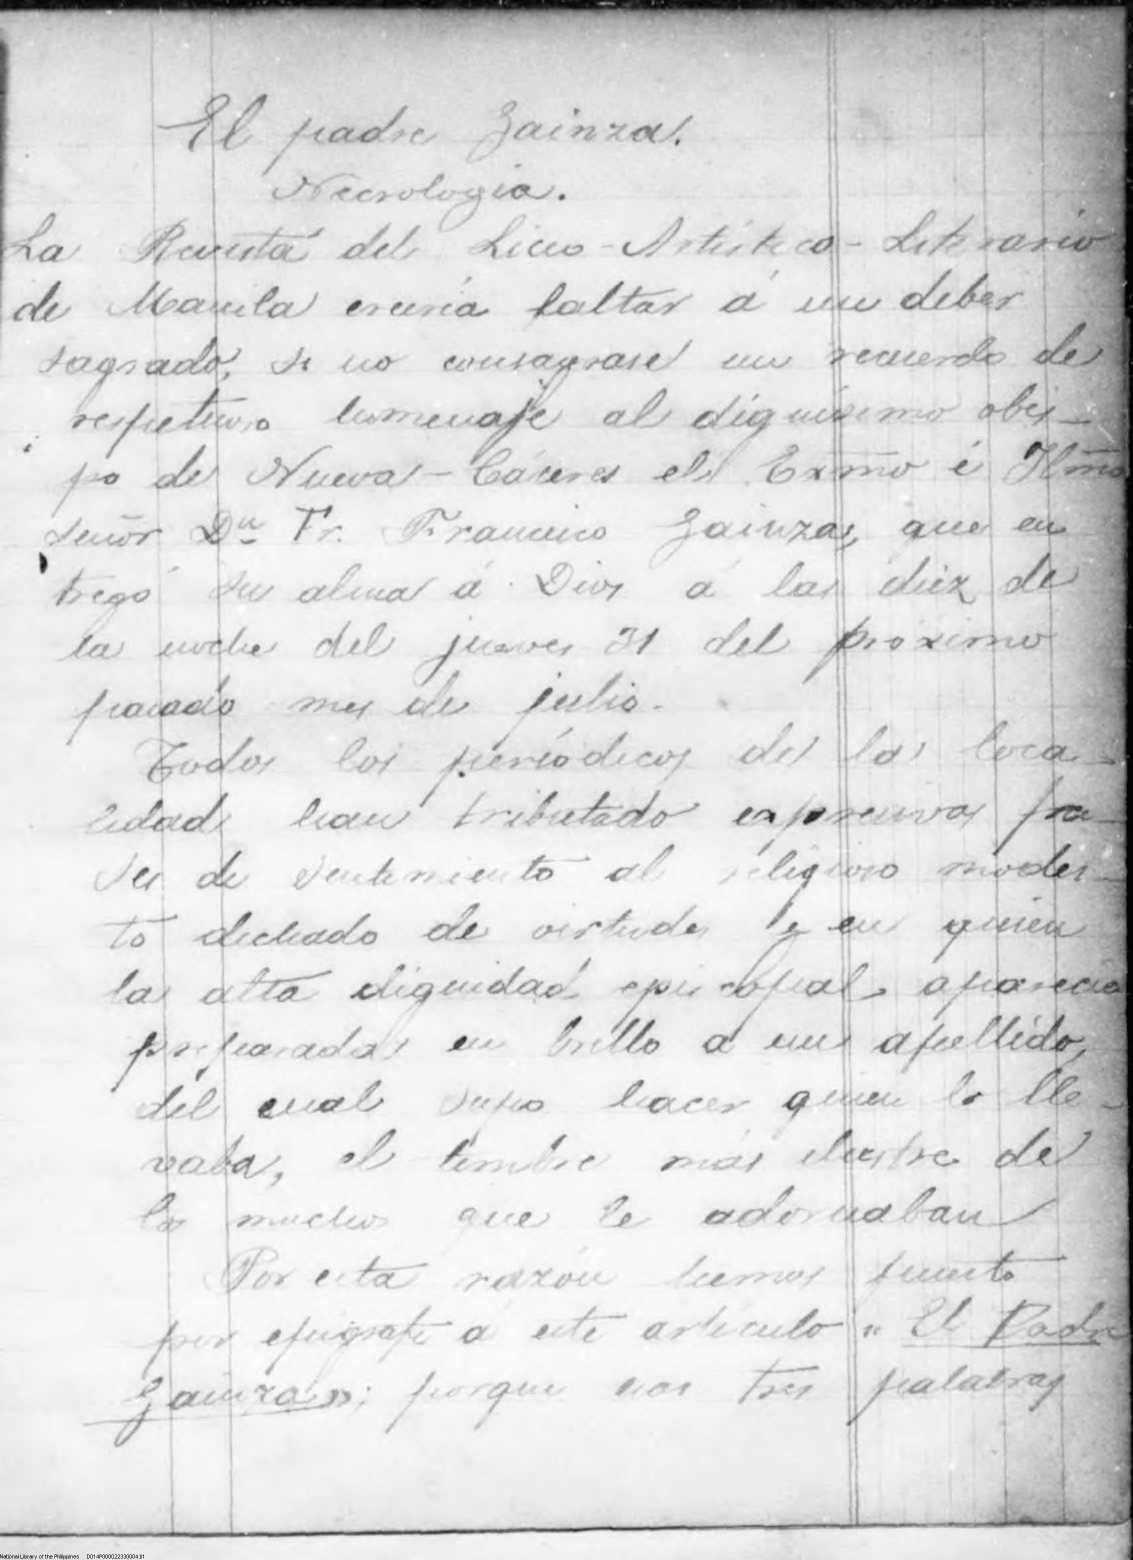 El padre Gainza.
Necrologia.
La Revista del Liceo-Artístico-Literario
de Manila creería faltar á un deber
sagrado, si no consagrase un recuerdo de
respetuoso homenaje al dignísimo obis-
po de Nueva-Cáceres el Exmo é Ilmo
Señor Dn Fr. Francisco Gainza, que en
tregó su alma á Dios á las diez de
la noche del jueves 31 del proximo
pasado mes de julio.
Todos los periódicos de la loca-
lidad han tributado expresivas fra-
ses de sentimiento al religioso modes-
to dechado de virtudes en quien
la alta dignidad episcopal aparecia
en brillo a un apellido,
del cual supo hacer quien lo lle-
vaba, el timbre más ilustre de
los muchos que le adornaban
Por esta razón hemos puesto
por epigrafe á este articulo "El Padre
Gainza»; porque tres palabras
National Library of the Philippines D014P00002233000481